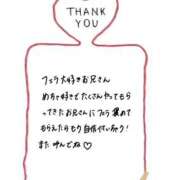 THANK
YOU
フェラ大好きお兄さん
めちゃ好きでたくさんやってもら
ってきたお兄さんにフェラ褒めて
もらえたらもう自信ついちゃう!
また呼んでね♡